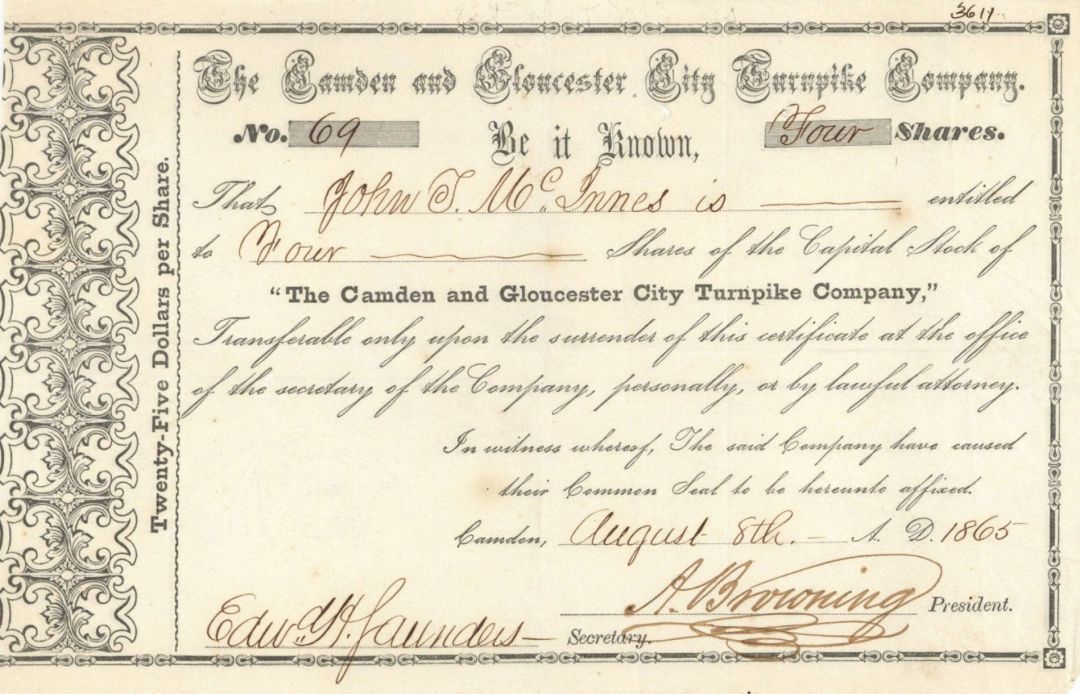 3611
The Camden and Gloucester City Turnpike Company.
No. 69 Be it Known, Four Shares.
That John T. Mc. Innes is entitled
to Four Shares of the Capital Stock of
"The Camden and Gloucester City Turnpike Company,"
Transferable only upon the surrender of this certificate at the office
of the secretary of the Company, personally, or by lawful attorney.
In witness whereof, The said Company have caused
their Common Seal to be hereunto affixed.
Camden, August 8th. A. D. 1865
A. Browning President.
Edw. H. Saunders Secretary.
Twenty-Five Dollars per Share.